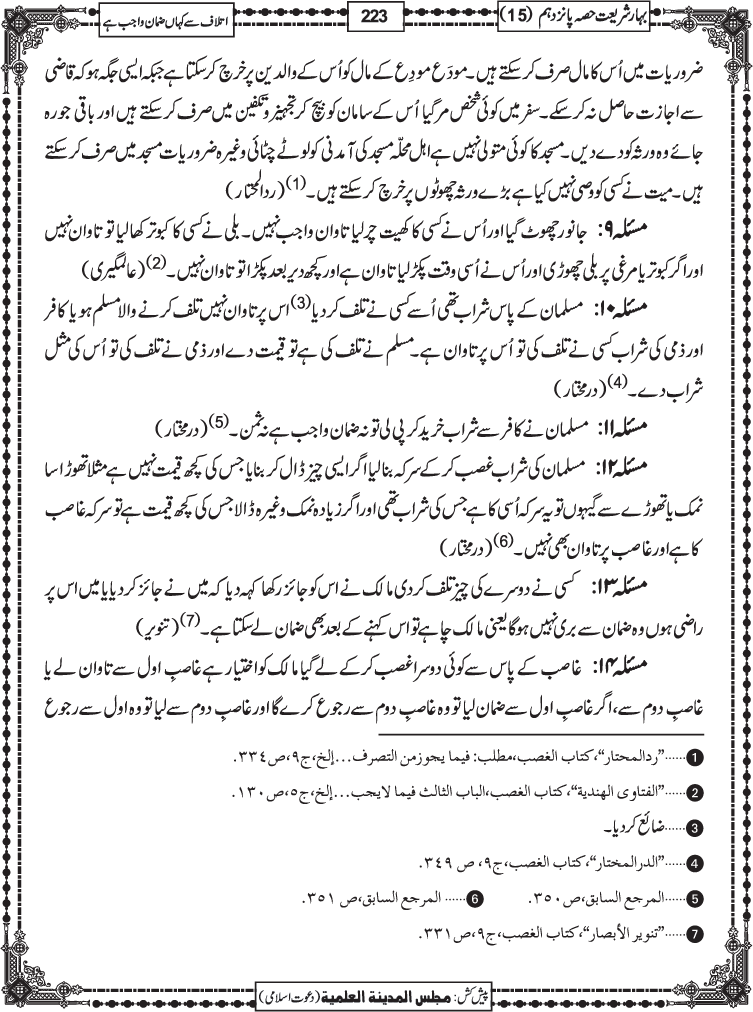 بہار شریعت حصہ پانزدہم (15)
223
اتلاف سے کہاں ضمان واجب ہے
ضروریات میں اُس کا مال صرف کرسکتے ہیں۔ مودَع مودِع کے مال کو اُس کے والدین پر خرچ کرسکتا ہے جبکہ ایسی جگہ ہو کہ قاضی
سے اجازت حاصل نہ کرسکے۔ سفر میں کوئی شخص مرگیا اُس کے سامان کو بیچ کر تجہیز و تکفین میں صرف کرسکتے ہیں اور باقی جو رہ
جائے وہ ورثہ کو دے دیں۔ مسجد کا کوئی متولی نہیں ہے اہل محلّہ مسجد کی آمدنی کو لوٹے چٹائی وغیرہ ضروریات مسجد میں صرف کرسکتے
ہیں۔ میت نے کسی کو وصی نہیں کیا ہے بڑے ورثہ چھوٹوں پر خرچ کرسکتے ہیں۔(1) (ردالمحتار)
مسئلہ ۹: جانور چھوٹ گیا اور اُس نے کسی کا کھیت چرلیا تاوان واجب نہیں۔ بلی نے کسی کا کبوتر کھالیا تو تاوان نہیں
اور اگر کبوتر یا مرغی پر بلی چھوڑی اور اُس نے اُسی وقت پکڑلیا تاوان ہے اور کچھ دیر بعد پکڑا تو تاوان نہیں۔(2) (عالمگیری)
مسئلہ ۱۰: مسلمان کے پاس شراب تھی اُسے کسی نے تلف کردیا(3) اس پر تاوان نہیں تلف کرنے والا مسلم ہو یا کافر
اور ذمی کی شراب کسی نے تلف کی تو اُس پر تاوان ہے۔ مسلم نے تلف کی ہے تو قیمت دے اور ذمی نے تلف کی تو اُس کی مثل
شراب دے۔(4) (درمختار)
مسئلہ ۱۱: مسلمان نے کافر سے شراب خرید کر پی لی تو نہ ضمان واجب ہے نہ ثمن۔(5) (درمختار)
مسئلہ ۱۲: مسلمان کی شراب غصب کرکے سرکہ بنالیا اگر ایسی چیز ڈال کر بنایا جس کی کچھ قیمت نہیں ہے مثلاً تھوڑا سا
نمک یا تھوڑے سے گیہوں تو یہ سرکہ اُسی کا ہے جس کی شراب تھی اور اگر زیادہ نمک وغیرہ ڈالا جس کی کچھ قیمت ہے تو سرکہ غاصب
کا ہے اور غاصب پر تاوان بھی نہیں۔(6) (درمختار)
مسئلہ ۱۳: کسی نے دوسرے کی چیز تلف کردی مالک نے اس کو جائز رکھا کہہ دیا کہ میں نے جائز کردیا یا میں اس پر
راضی ہوں وہ ضمان سے بری نہیں ہوگا یعنی مالک چاہے تو اس کہنے کے بعد بھی ضمان لے سکتا ہے۔(7) (تنویر)
مسئلہ ۱۴: غاصب کے پاس سے کوئی دوسرا غصب کرکے لے گیا مالک کو اختیار ہے غاصبِ اول سے تاوان لے یا
غاصبِ دوم سے، اگر غاصبِ اول سے ضمان لیا تو وہ غاصبِ دوم سے رجوع کرے گا اور غاصبِ دوم سے لیا تو وہ اول سے رجوع
1 ......"ردالمحتار"، کتاب الغصب، مطلب: فیما یجوز من التصرف...إلخ، ج۹، ص۳۳٤.
2 ......"الفتاوی الهندیة"، کتاب الغصب، الباب الثالث فیما لایجب...إلخ، ج٥، ص۱۳۰.
3 ......ضائع کردیا۔
4 ......"الدرالمختار"، کتاب الغصب، ج۹، ص ۳٤۹.
5 ......المرجع السابق، ص۳٥۰.
6 ...... المرجع السابق، ص ۳٥۱.
7 ......"تنویر الأبصار"، کتاب الغصب، ج۹، ص۳۳۱.
پیش کش: مجلس المدینة العلمیة (دعوت اسلامی)